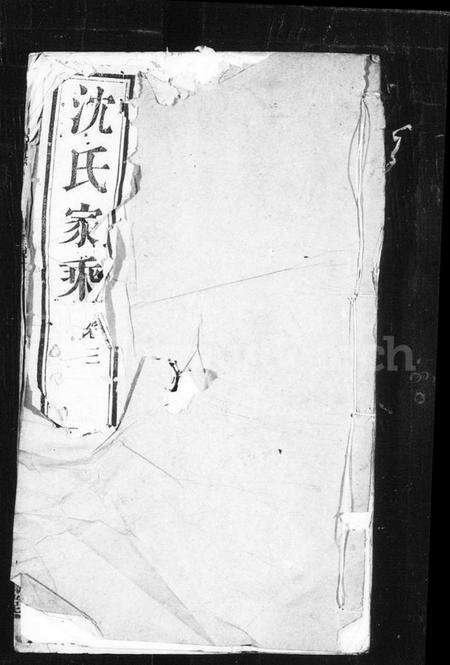 沈氏家乘
卷三